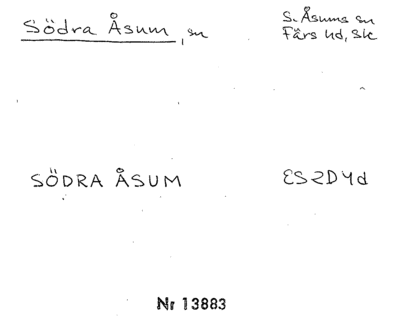 Södra Åsum, sn
S. Åsums sn
Färs hd, Sk
SÖDRA ÅSUM
ES2D4d
Nr 13883